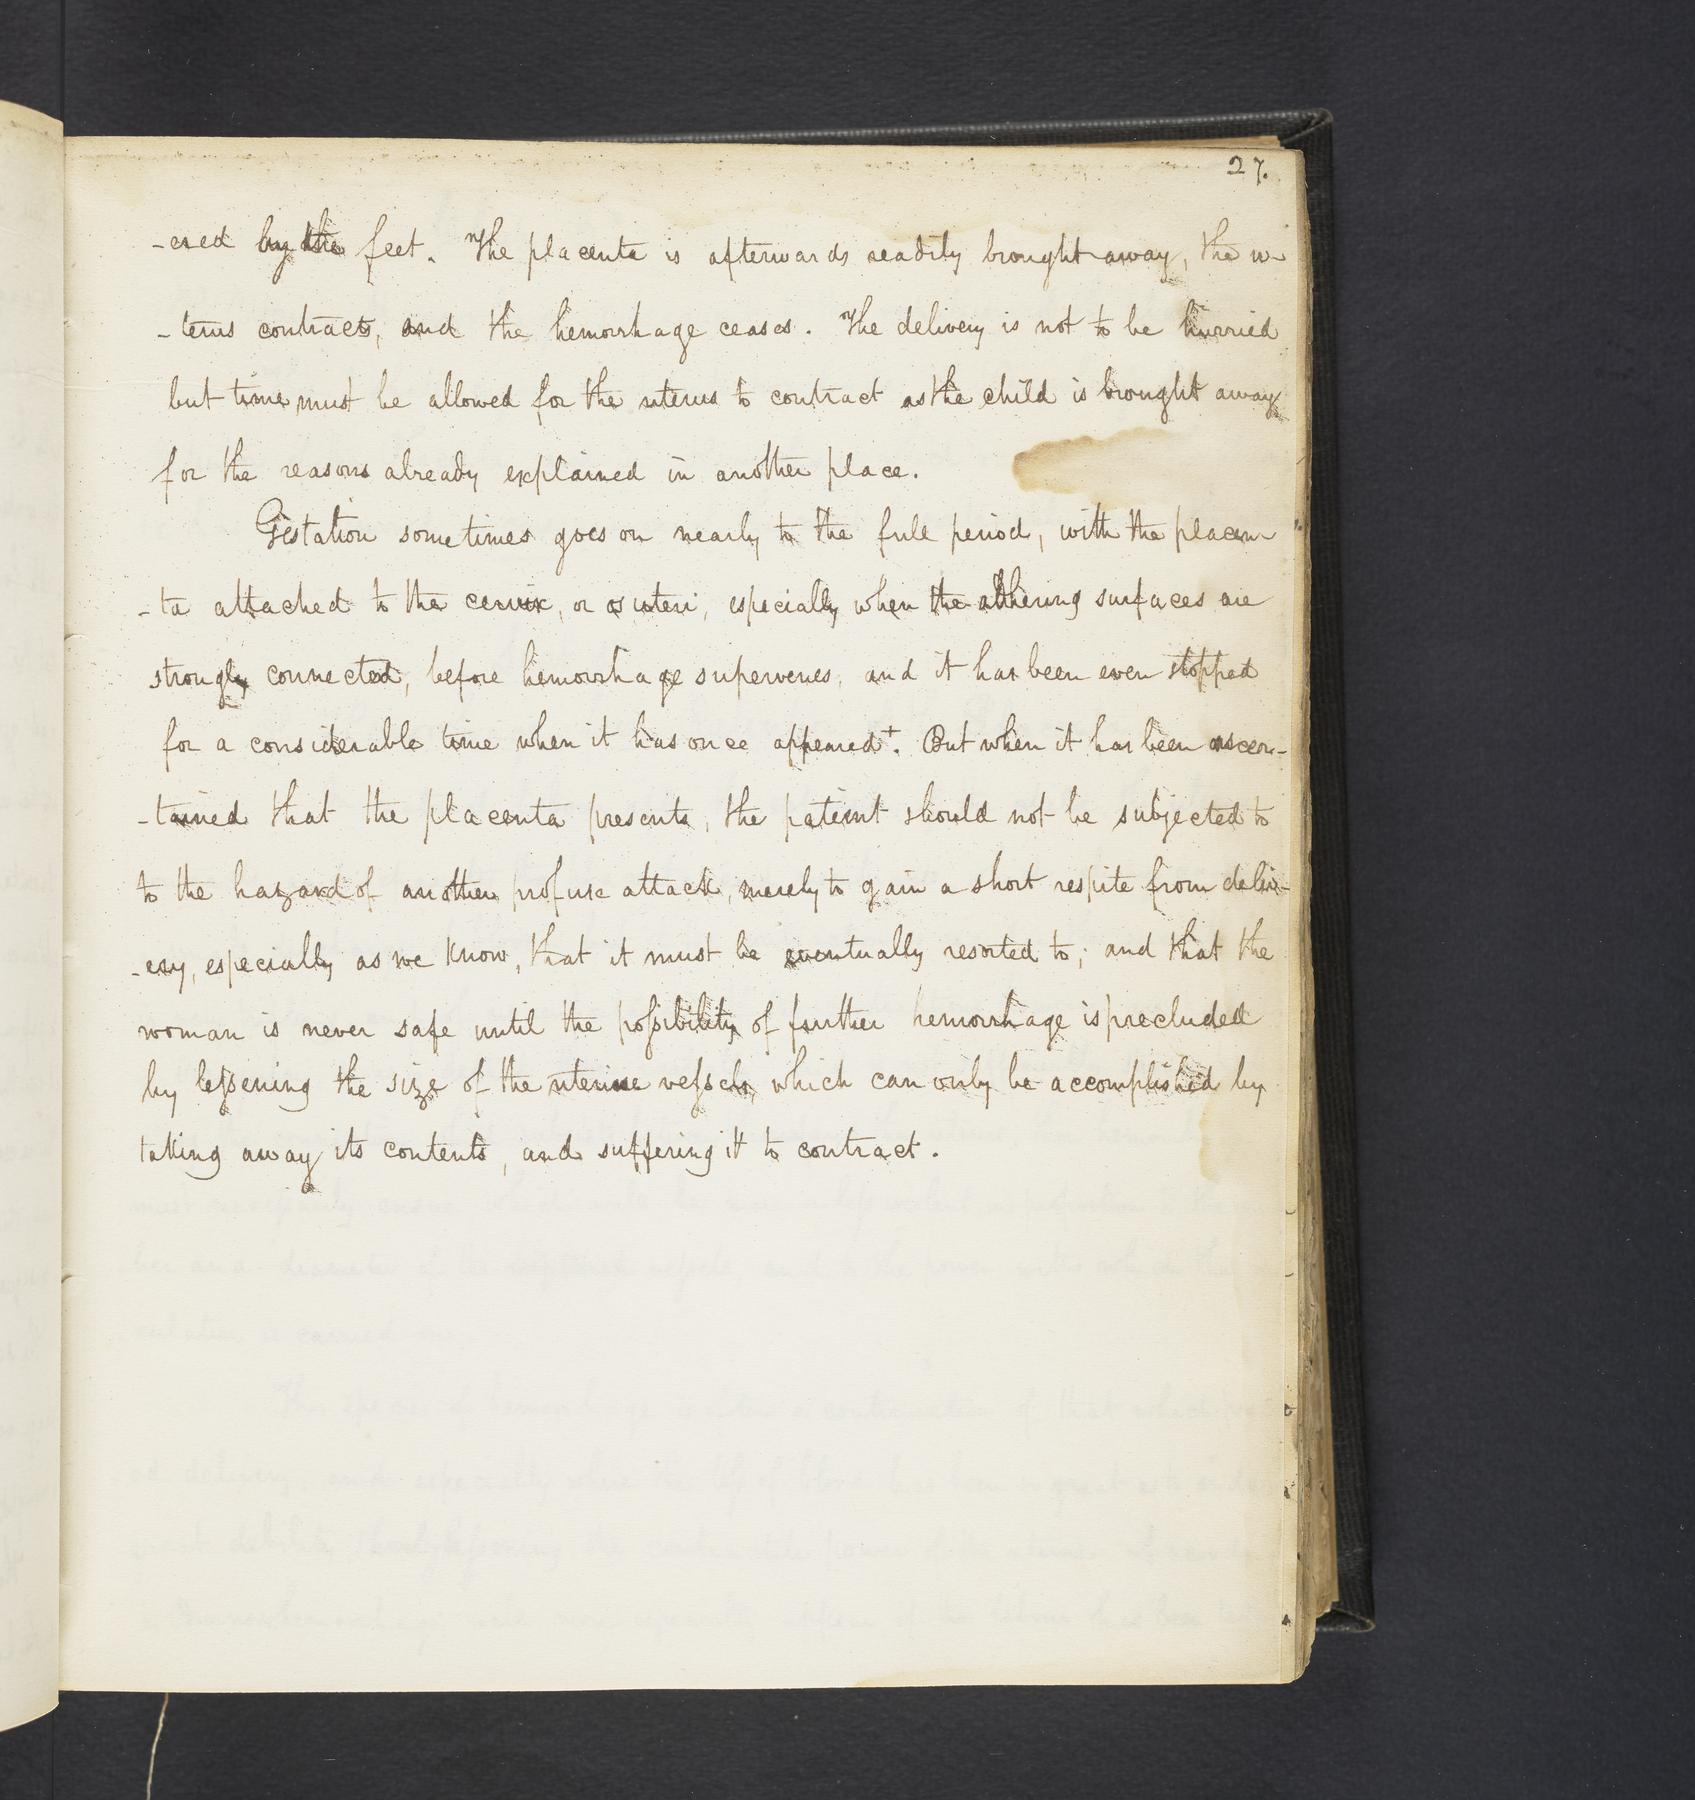 27.
-ered by the feet. The placenta is afterwards readily brought away, the u-
-terus contracts, and the hemorrhage ceases. The delivery is not to be hurried
but time must be allowed for the uterus to contract as the child is brought away
for the reasons already explained in another place.
Gestation sometimes goes on nearly to the full period, with the placen-
-ta attached to the cervix, or os uteri, especially when the adhering surfaces are
strongly connected, before hemorrhage supervenes, and it has been even stopped
for a considerable time when it has once appeared+. But when it has been ascer-
-tained that the placenta presents, the patient should not be subjected to
to the hazard of another profuse attack, merely to gain a short respite from deliv-
-ery, especially as we know, that it must be eventually resorted to; and that the
woman is never safe until the poſsibility of further hemorrhage is precluded
by leſsening the size of the uterine veſsels, which can only be accomplished by
taking away its contents, and suffering it to contract.